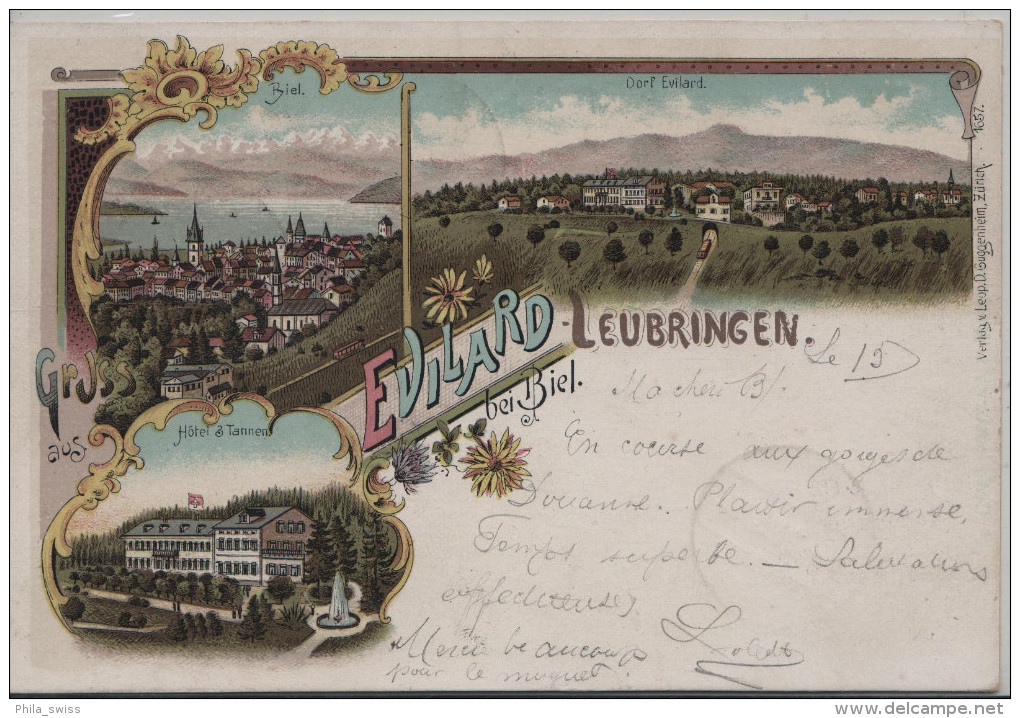 Biel.
Dorf Evilard.
1657.
Verlag v. Leop. D. Guggenheim, Zürich
Gruss
aus
EVILARD-LEUBRINGEN.
bei Biel.
Hôtel 3 Tannen
Le 15
Ma chère B.
En course aux gorges de
Douanne. Plaisir immense,
Temps superbe. — Salutations
affectueuses
Merci beaucoup
pour le muguet.
Phila_swiss
delcampe.net